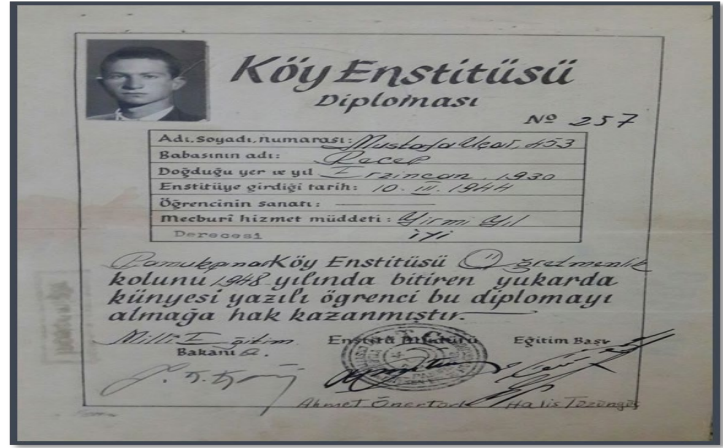 Köy Enstitüsü
Diploması
Nº 257
Adı, Soyadı, numarası: Mustafa Uçar, 453
Babasının adı: Recep
Doğduğu yer ve yıl Erzincan, 1930
Enstitüye girdiği tarih: 10. III. 1944
Öğrencinin sanatı:
Mecburî hizmet müddeti: Yirmi Yıl
Derecesi iyi
Pamukpınar Köy Enstitüsü Öğretmenlik
kolunu 1948 yılında bitiren yukarda
künyesi yazılı öğrenci bu diplomayı
almağa hak kazanmıştır.
Millî Eğitim Enstitü Müdürü Eğitim Başı
Bakanı a.
T.C.
Ahmet Önertürk Halis Tüzüngüç